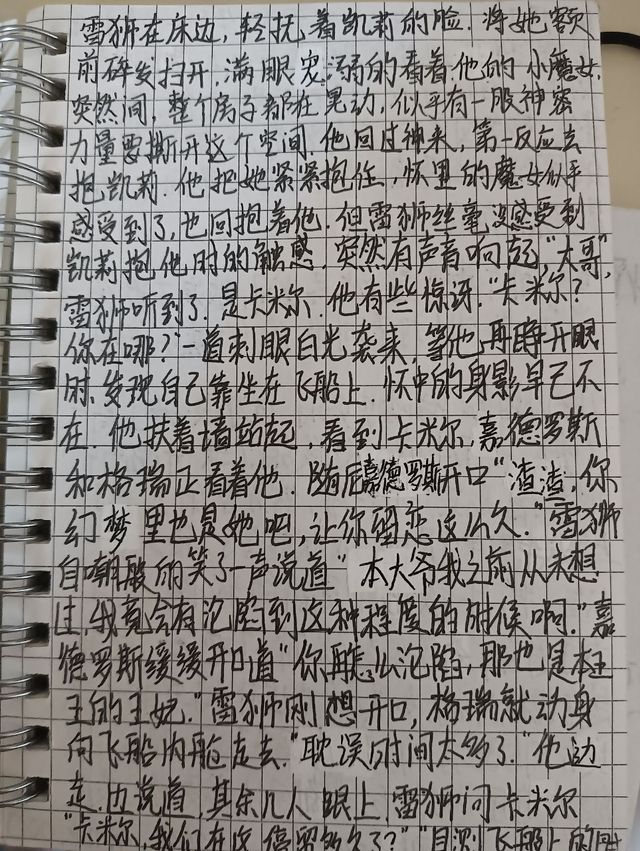 雷狮在床边,轻抚着凯莉的脸.将她额
前碎发扫开,满眼宠溺的看着他的小魔女.
突然间,整个房子都在晃动,似乎有一股神密
力量要撕开这个空间.他回过神来,第一反应去
抱凯莉.他把她紧紧抱住,怀里的魔女似乎
感受到了,也回抱着他.但雷狮丝毫没感受到
凯莉抱他时的触感.突然有声音响起,"大哥",
雷狮听到了.是卡米尔.他有些惊讶."卡米尔?
你在哪?"一道刺眼白光袭来,等他再睁开眼
时.发现自己靠坐在飞船上.怀中的身影早已不
在.他扶着墙站起,看到卡米尔,嘉德罗斯
和格瑞正看着他.随后嘉德罗斯开口"渣渣,你
幻梦里也是她吧,让你留恋这么久."雷狮
自嘲般的笑了一声说道"本大爷我之前从未想
过,我竟会有沦陷到这种程度的时候啊."嘉
德罗斯缓缓开口道"你再怎么沦陷,那也是本王
王的王妃."雷狮刚想开口,格瑞就动身
向飞船内舱走去."耽误时间太多了."他边
走边说道.其余几人跟上.雷狮问卡米尔
"卡米尔,我们在这停留多久了?""目测飞船上的时